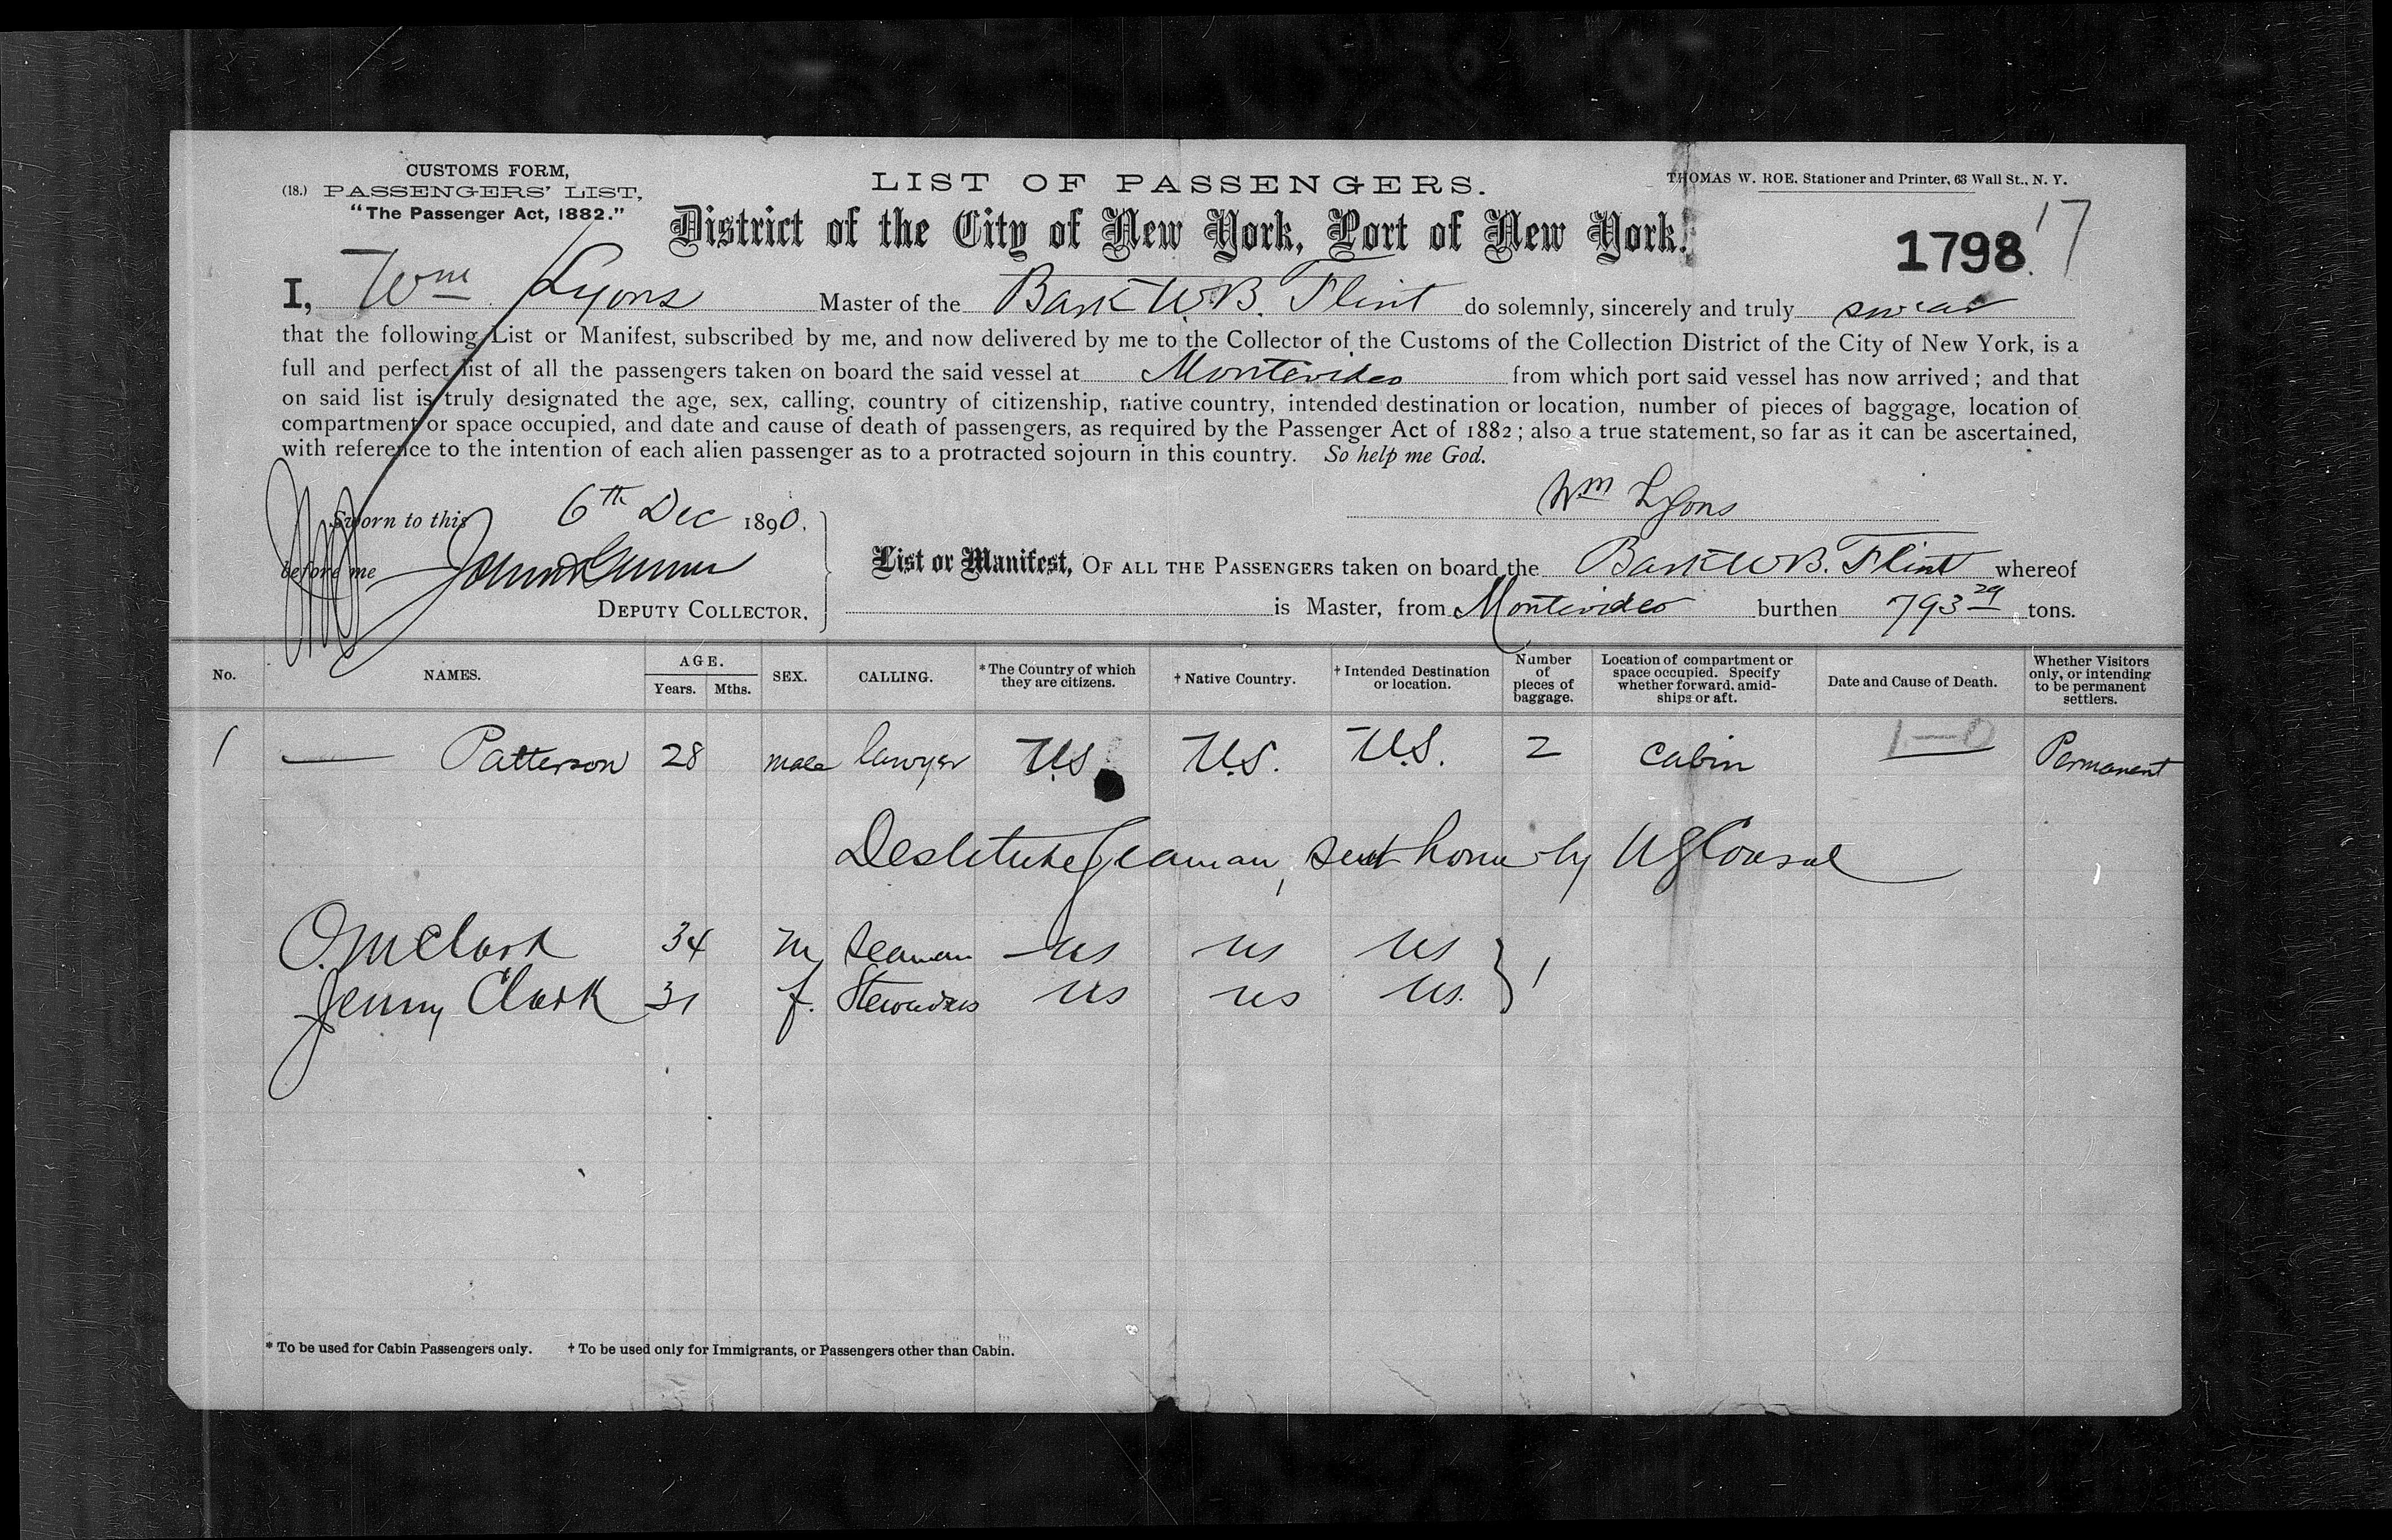 CUSTOMS FORM,
(18.) PASSENGERS' LIST,
"The Passenger Act, 1882."
LIST OF PASSENGERS.
THOMAS W. ROE, Stationer and Printer, 63 Wall St., N. Y.
District of the City of New York, Port of New York.
1798. 17
I, Wm Lyons Master of the Bark W.B. Flint do solemnly, sincerely and truly swear
that the following List or Manifest, subscribed by me, and now delivered by me to the Collector of the Customs of the Collection District of the City of New York, is a
full and perfect list of all the passengers taken on board the said vessel at Montevideo from which port said vessel has now arrived; and that
on said list is truly designated the age, sex, calling, country of citizenship, native country, intended destination or location, number of pieces of baggage, location of
compartment or space occupied, and date and cause of death of passengers, as required by the Passenger Act of 1882; also a true statement, so far as it can be ascertained,
with reference to the intention of each alien passenger as to a protracted sojourn in this country. So help me God.
Wm Lyons
Sworn to this 6th Dec 1890.
before me
DEPUTY COLLECTOR.
List or Manifest, OF ALL THE PASSENGERS taken on board the Bark W.B. Flint whereof
is Master, from Montevideo burthen 793 29 tons.
No. NAMES. AGE. Years. Mths. SEX. CALLING. *The Country of which they are citizens. †Native Country. †Intended Destination or location. Number of pieces of baggage. Location of compartment or space occupied. Specify whether forward, amidships or aft. Date and Cause of Death. Whether Visitors only, or intending to be permanent settlers.
1 — Patterson 28 male lawyer U.S. U.S. U.S. 2 cabin — Permanent
Destitute Seaman, sent home by US Consul
O. M Clark 34 m seaman US US US } 1
Jenny Clark 31 f. Stewardess US US US.
* To be used for Cabin Passengers only. † To be used only for Immigrants, or Passengers other than Cabin.